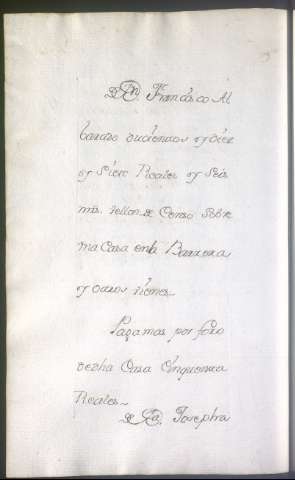 Dn. Francisco Al
barado ducientos y diez
y siete Reales y seis
mrs. vellon de Censo sobre
una Casa en la Barrera
y otros vienes
Pagamos por foro
de dha Casa cinquenta
Reales
Da. Josepha